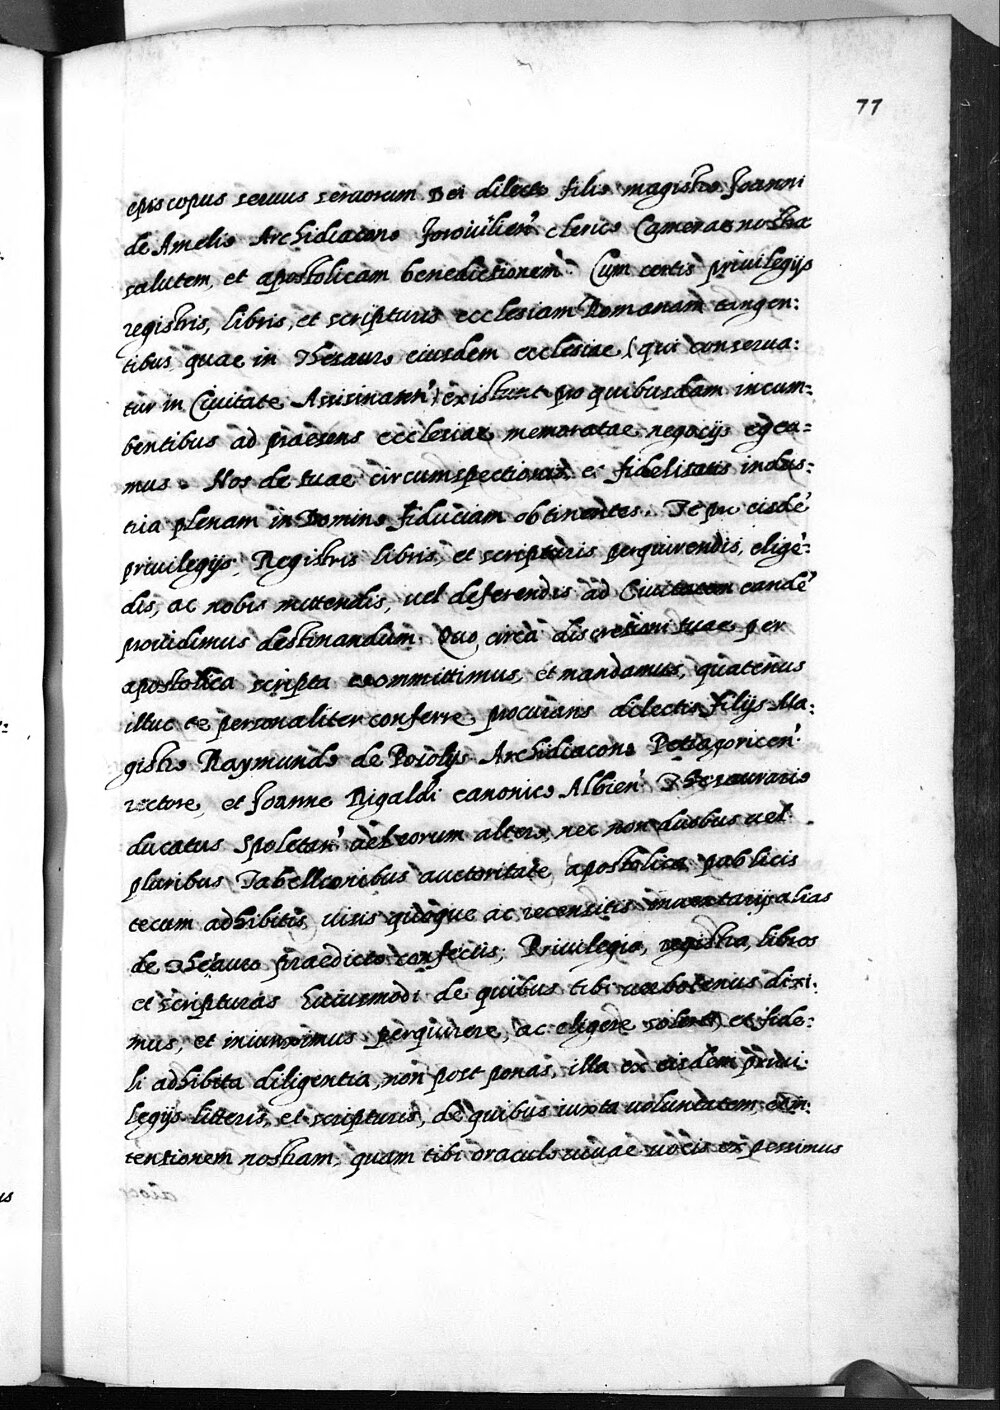 77
episcopus seruus seruorum Dei dilecto filio magistro Joanni
de Amelio Archidiacono Foroiulien̄ clerico Camerae nostrae
salutem, et apostolicam benedictionem. Cum certis priuilegijs
registris, libris, et scripturis ecclesiam Romanam tangen:
tibus quae in Thesauro eiusdem ecclesiae (qui conserua:
tur in Ciuitate Assisinaten̄) existunt pro quibusdam incum:
bentibus ad praesens ecclesiae memoratae negocijs egea=
mus. Nos de tuae circumspectionis, et fidelitatis indus:
tria plenam in Domino fiduciam obtinentes. Te pro eisdē
priuilegijs, Registris libris, et scripturis perquirendis, eligē:
dis, ac nobis mittendis, uel deferendis ad Ciuitatem eandē
prouidimus destinandum. Quo circa discretioni tuae per
apostolica scripta committimus, et mandamus, quatenus
illuc te personaliter conferre procurans dilectis filijs Ma:
gistro Raymundo de Poiolijs Archidiacono Petragoricen̄
rectore, et Joanne Rigaldi canonico Albien̄ Thesaurario
ducatus Spoletan̄ uel eorum altero, nec non duobus uel
pluribus Tabellionibus auctoritate apostolica publicis
tecum adhibitis, uisis quoque ac recensitis inuentarijs alias
de Thesauro praedicto confectis, Priuilegia, registra, libros
et scripturas huiusmodi de quibus tibi uerbotenus dixi:
mus, et iniunximus perquirere, ac eligere solerti, et fide:
li adhibita diligentia, non post ponas, illa ex eisdem priui:
legijs litteris, et scripturis, de quibus iuxta uoluntatem et in:
tentionem nostram, quam tibi oraculo uiuae uocis expressimus